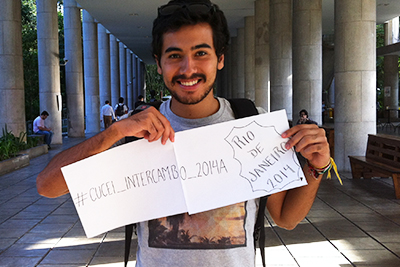 #CUCEI_INTERCAMBIO_2014A
RIO
DE
JANEIRO
2014